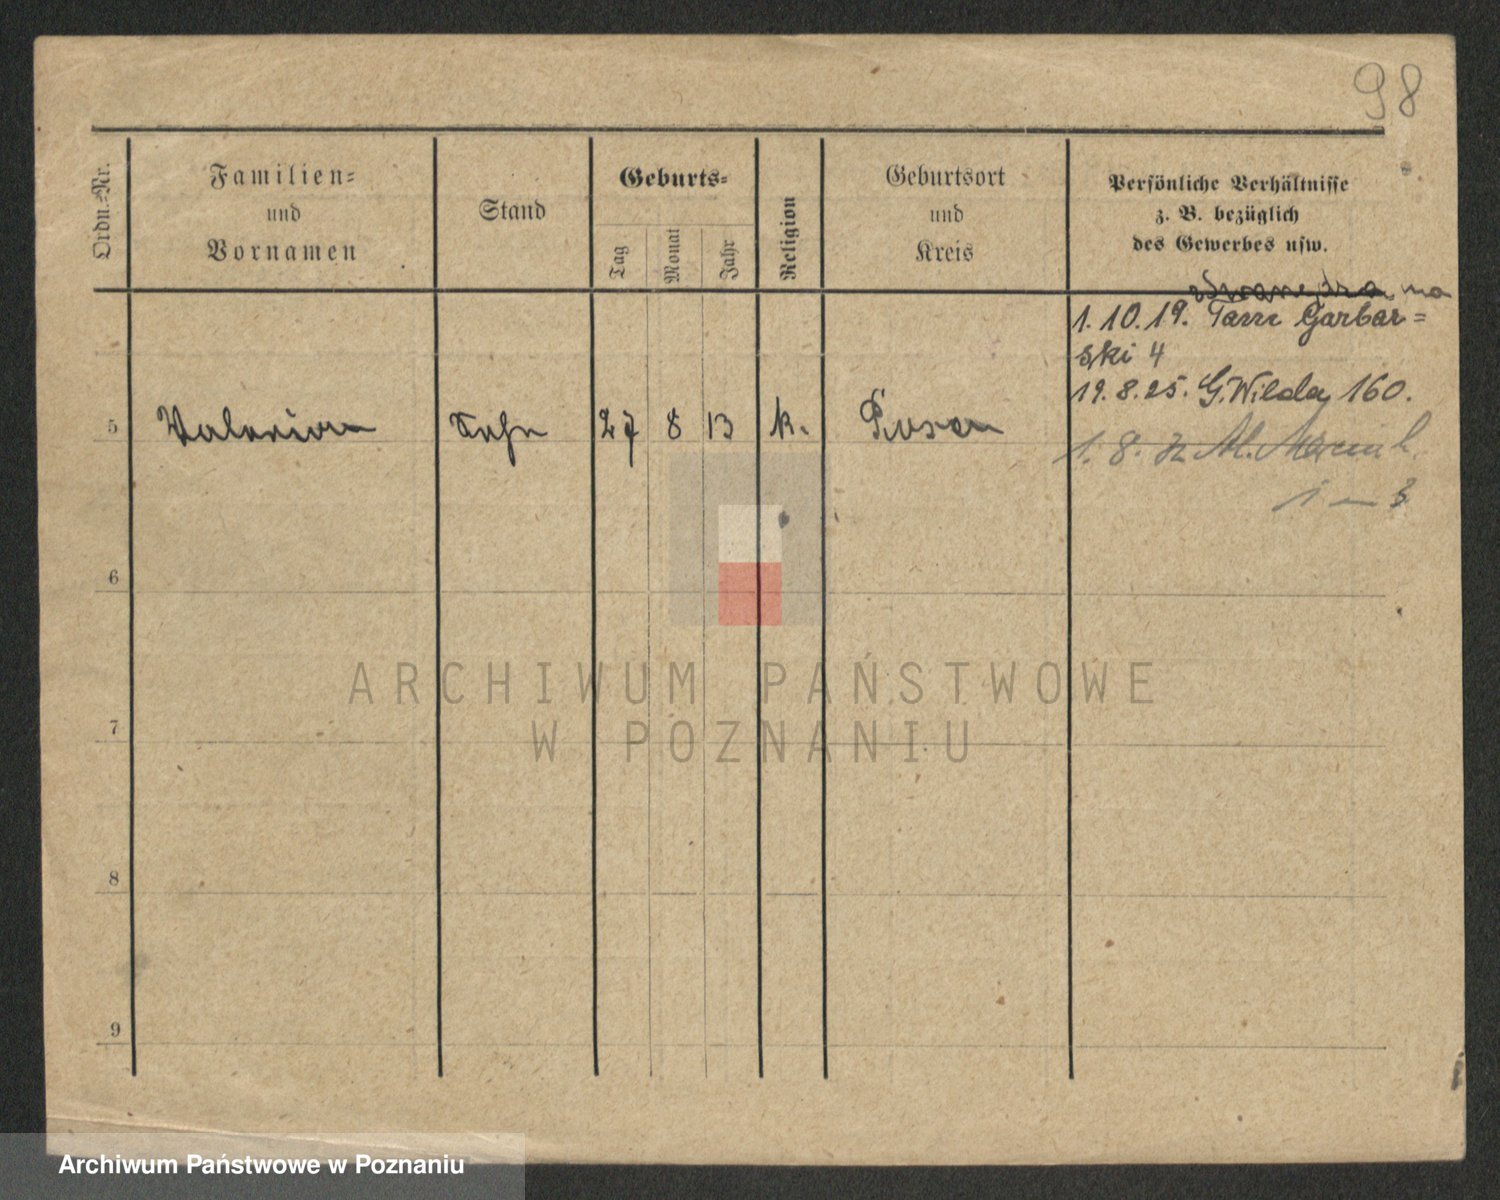 98
Ordn.-Nr.
Familien-
und
Vornamen
Stand
Geburts-
Tag
Monat
Jahr
Religion
Geburtsort
und
Kreis
Persönliche Verhältnisse
z. B. bezüglich
des Gewerbes usw.
1. 10. 19. Garbar=
ski 4
19. 8. 25. G. Wilda 160.
5 Valerian Sohn 27 8 13 k. Posen
1. 8.
6
7
8
9
ARCHIWUM PAŃSTWOWE
W POZNANIU
Archiwum Państwowe w Poznaniu